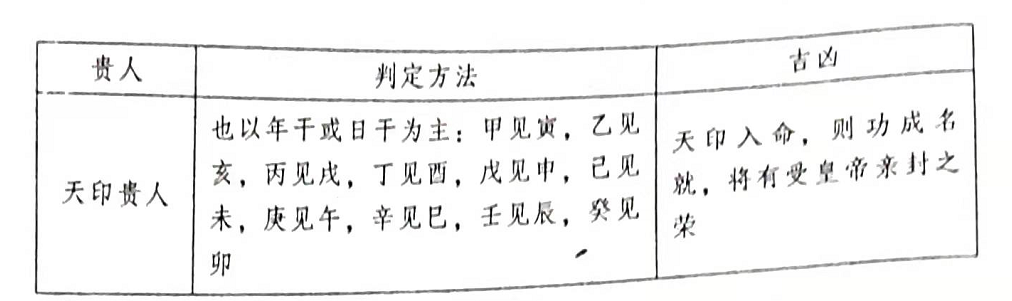 贵人
判定方法
吉凶
天印贵人
也以年干或日干为主：甲见寅，乙见
亥，丙见戌，丁见酉，戊见申，己见
未，庚见午，辛见巳，壬见辰，癸见
卯
天印入命，则功成名
就，将有受皇帝亲封之
荣